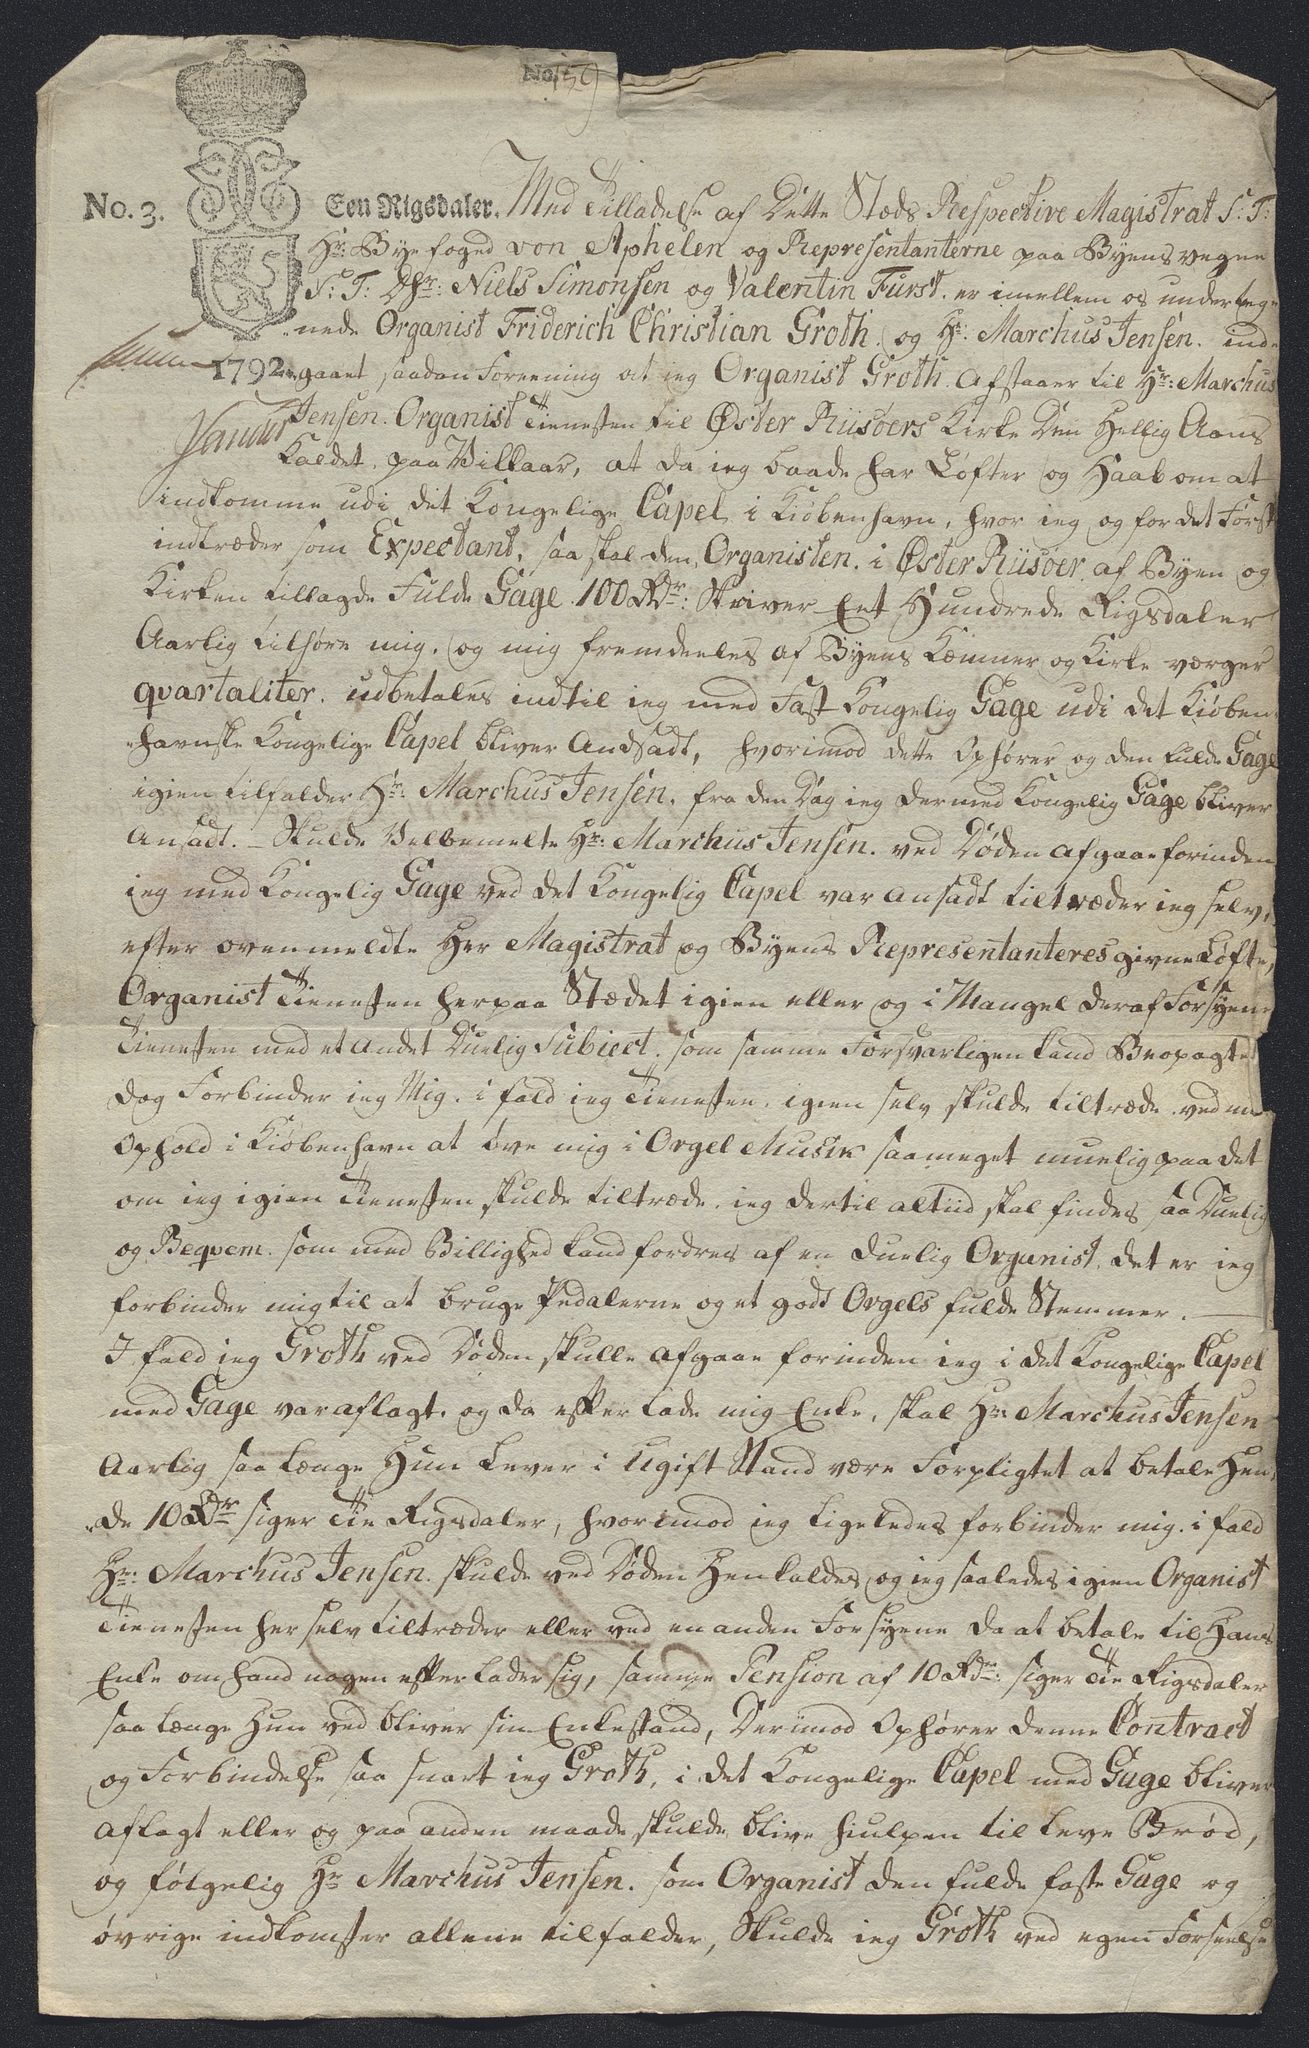 No 159
No. 3. Een Rigsdaler. Med Tilladelse af Dette Stæds Respective Magistrat S: T:
Hr: Byefoged von Aphelen og Representanterne paa Byens vegne
S: T: Dhr: Niels Simonsen og Valentin Fürst. er imellem os underteg-
nede Organist Friderich Christian Groth. og Hr: Marchus Jensen. ind-
1792. gaaet saadan Foreening at ieg Organist Groth. Afstaaer til Hr: Marchus
Jensen. Organist Tienesten til Øster Riisøers Kirke Den Hellig Aand
Kaldet. paa Villkaar, at da ieg baade har Løfter og Haab om at
indkomme udi det Kongelige Capel i Kiøbenhavn, hvor ieg og for det Først
indtræder som Expectant, saa skal den, Organisten. i Øster Riisøer af Byen og
Kirken tillagde Fulde Gage 100 Rdr: Skriver Eet Hundrede Rigsdaler
Aarlig tilhøre mig. og mig fremdeeles af Byens Kæmner og Kirke værger
qvartaliter. udbetales indtil ieg med Fast Kongelig Gage udi det Kiøben-
-havnske Kongelige Capel bliver Andsadt, hvorimod dette Ophører og den fulde Gage
igien tilfalder Hr: Marchus Jensen. fra den Dag ieg dermed Kongelig Gage bliver
Ansadt. - Skulde Velbemelte Hr: Marchus Jensen. ved Døden afgaae forinden
ieg med Kongelig Gage ved det Kongelig Capel var ansadt tiltræder ieg selv,
efter ovenmeldte Herr Magistrat og Byens Representanteres givne Løfte,
Organist Tienesten her paa Stædet igien eller og i Mangel deraf Forsyene
Tienesten med et andet Duelig Subiect. som samme Forsvarligen kand Beopagtet
dog Forbinder ieg Mig. i fald ieg Tienesten. igien selv skulde tiltræde. ved m
Ophold i Kiøbenhavn at øve mig i Orgel Musik saameget muelig paa det
om ieg igien Tienesten skulde tiltræde. ieg dertil altiid skal findes saa Duelig
og Beqvem. som med Billighed kand fordres af en duelig Organist. det er ieg
forbinder mig til at bruge Pedalerne og et godt Orgels fulde Stemmer.
I fald ieg Groth ved Døden skulle afgaae forinden ieg i det Kongelige Capel
med Gage var aflagt. og da efterlade mig Enke, skal Hr: Marchus Jensen
Aarlig saa længe Hun Lever i Ugift Stand være Forpligtet at betale Hen-
-de 10 Rdr siger Tie Rigsdaler, hvorimod ieg ligeledes forbinder mig. i fald
Hr: Marchus Jensen. skulde ved Døden Henkaldes og ieg saaledes igien Organist
Tienesten her selv tiltræder eller ved en anden Forsyene da at betale til Hans
Enke om hand nogen efterlader sig, samme Pension af 10 Rdr: siger Tie Rigsdaler
saa længe Hun ved bliver sin Enkestand, Derimod Ophører denne Contract
og Forbindelse saa snart ieg Groth, i det Kongelige Capel med Gage bliver
aflagt eller og paa anden maade skulde blive hiulpen til Leve Brød,
og følgelig Hr Marchus Jensen. som Organist den fulde faste Gage og
øvrige indkomster allene tilfalder, Skulde ieg Groth ved egen Forseelse